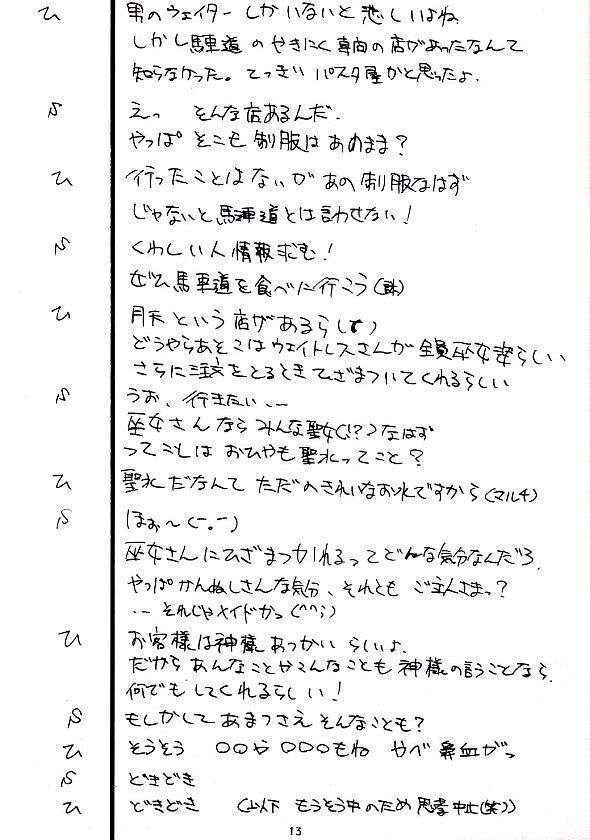 ひ 男のウェイターしかいないと悲しいよね
しかし馬車道のやきにく専門の店があったなんて
知らなかった。てっきりパスタ屋かと思ったよ.
S えっ そんな店あるんだ.
やっぱ そこも制服はあのまま?
ひ 行ったことはないがあの制服なはず
じゃないと馬車道とは言わせない!
S くわしい人情報求む!
ぜひ馬車道を食べに行こう
ひ 月天という店があるらしい
どうやらあそこはウェイトレスさんが全員巫女姿らしい
さらに注文をとるときひざまついてくれるらしい
S うお、行きたい、--
巫女さんならみんな聖女(!?)なはず
ってことは おひやも聖水ってこと?
ひ 聖水だなんて ただのきれいなお水ですから(マルチ)
S ほぉ〜(ー。ー)
巫女さんにひざまつかれるってどんな気分なんだろ.
やっぱかんぬしさんな気分、それとも ご主人さまっ?
-- それじゃメイドかっ(^^;)
ひ お客様は神様あつかいらしいよ.
だからあんなことやこんなことも神様の言うことなら.
何でもしてくれるらしい!
S もしかしてあまつさえそんなことも?
ひ そうそう ○○や○○○もね やべ鼻血がっ
S どきどき
ひ どきどき (以下 もうそう中のため思考中止(笑))
13